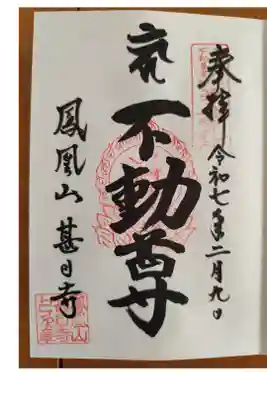 奉拝 令和七年二月九日
不動尊
鳳凰山 甚目寺